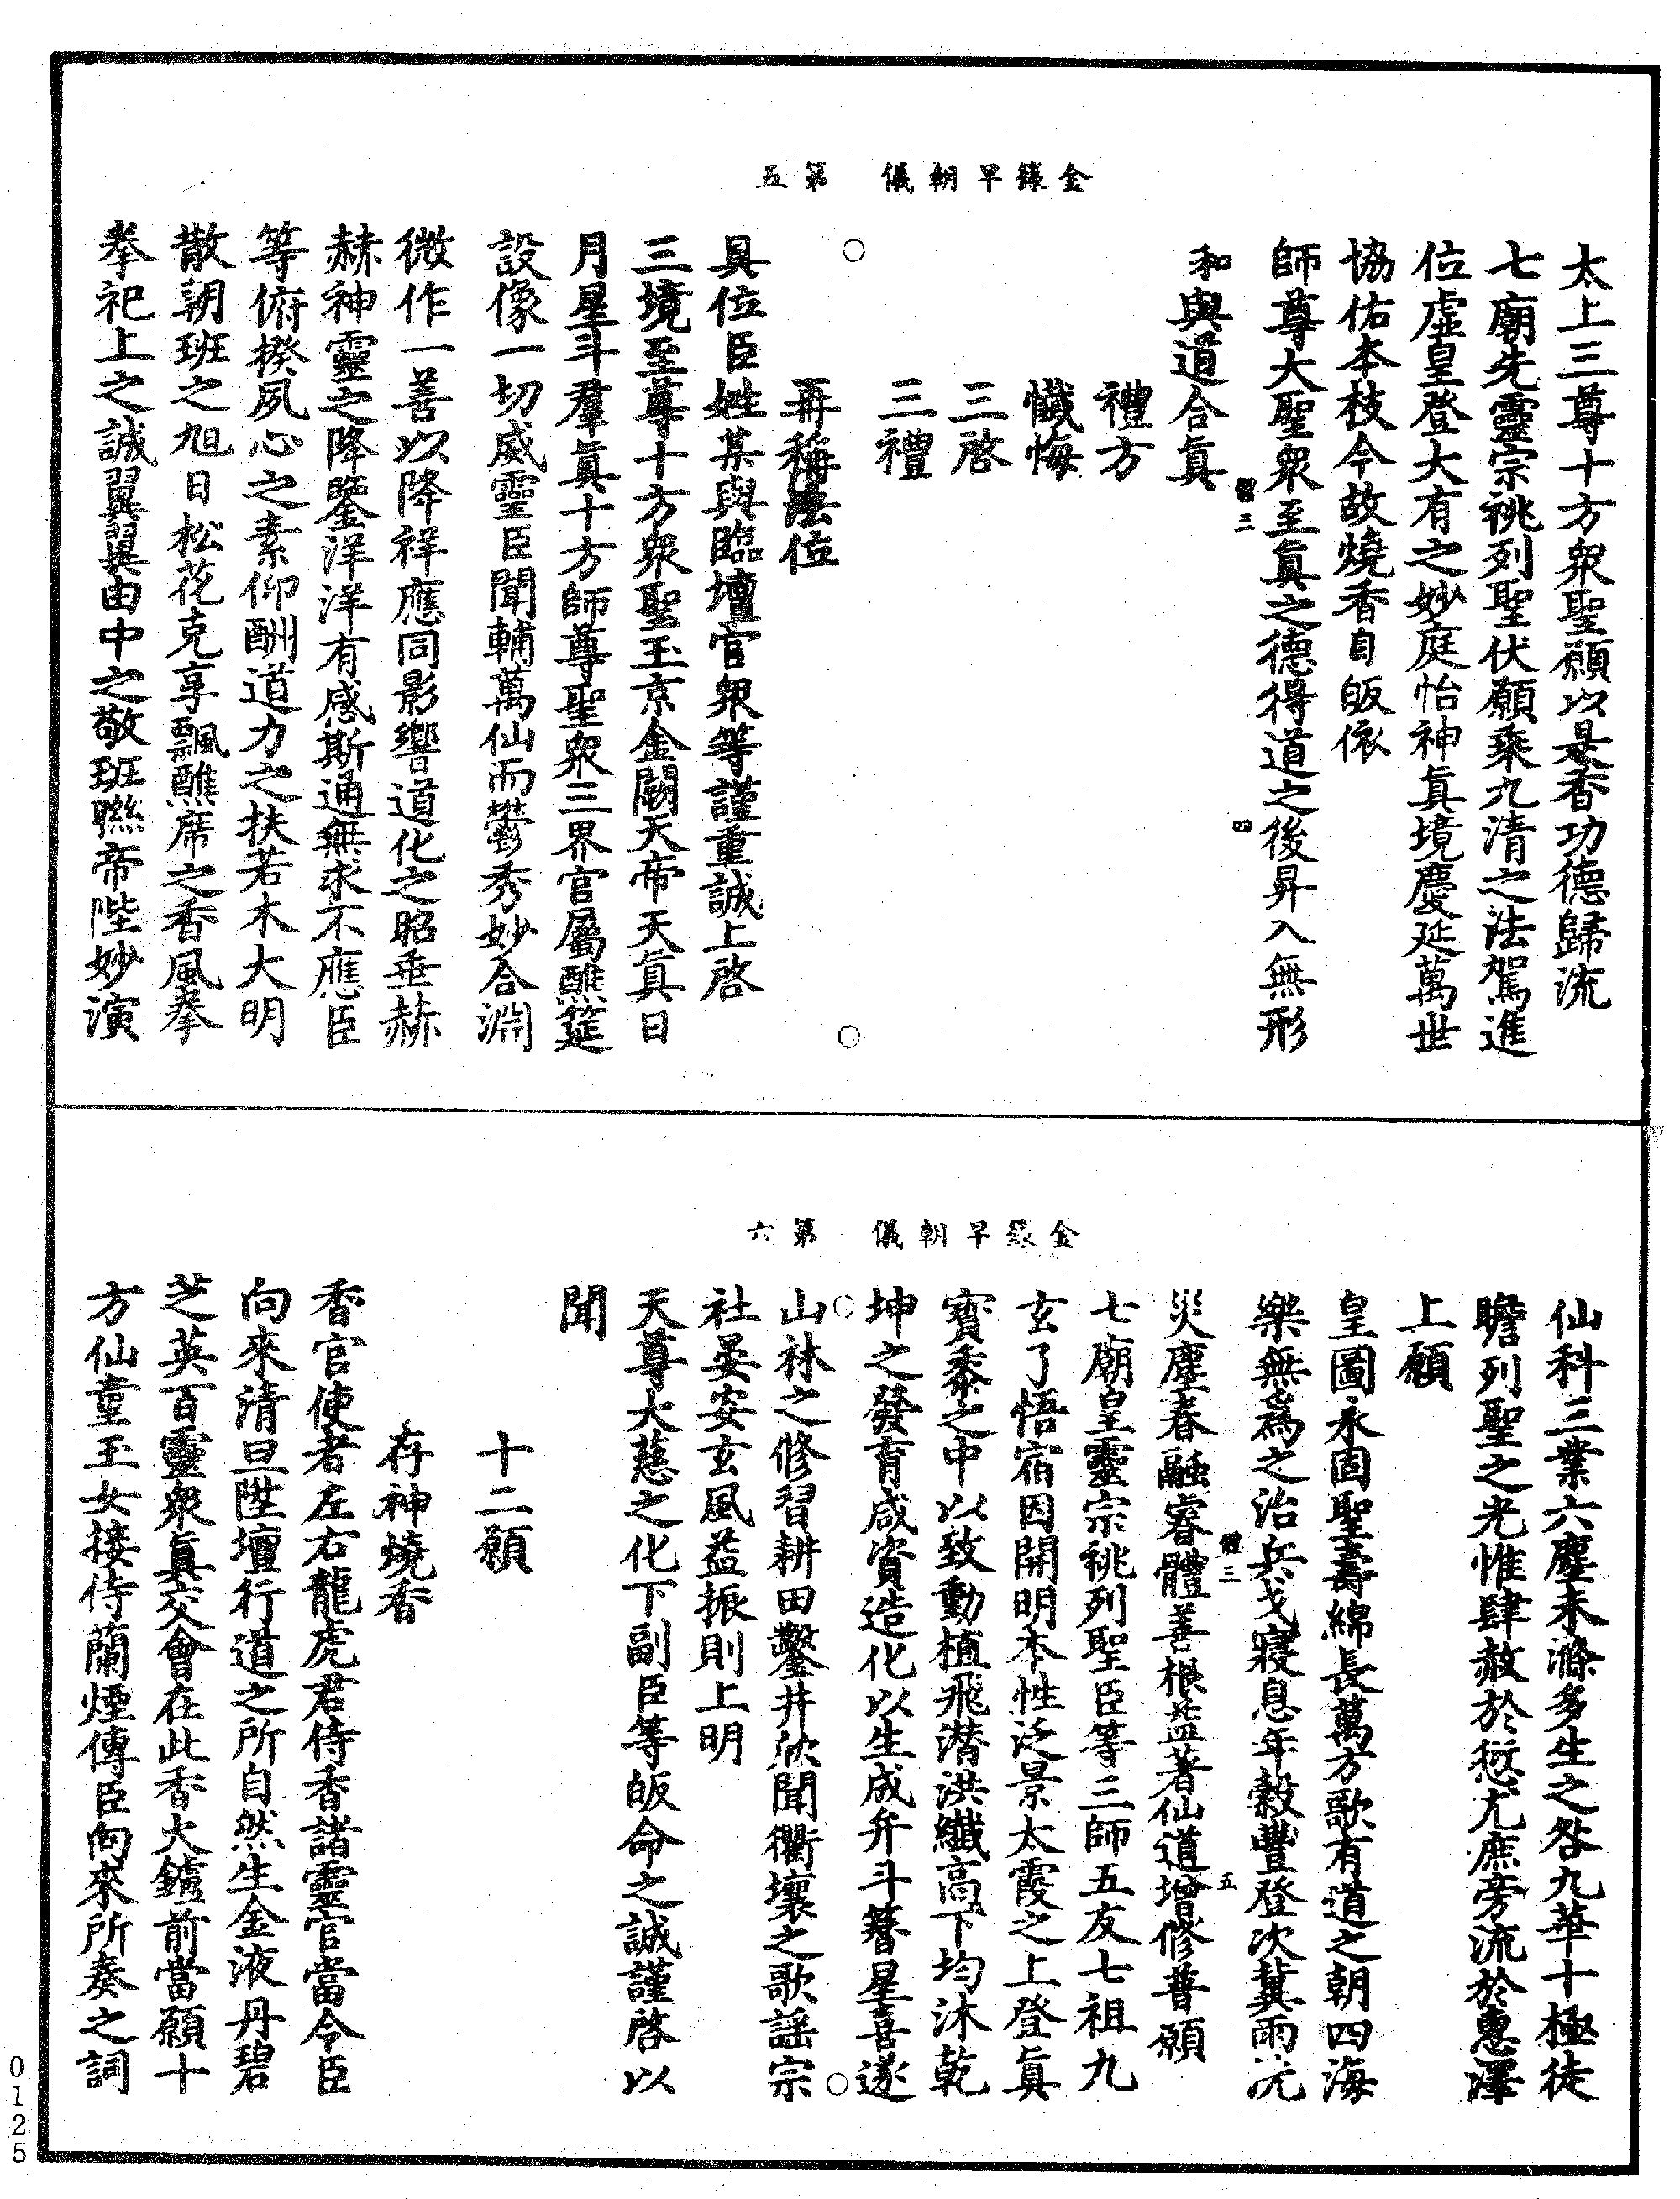 金籙早朝儀　第五
太上三尊十方衆聖願以是香功德歸流
七廟先靈宗祧列聖伏願乘九清之法駕進
位虛皇登大有之妙庭怡神真境慶延萬世
協佑本枝今故燒香自皈依
師尊大聖衆至真之德得道之後昇入無形
和與道合真
體三
四
禮方
懺悔
三啓
三禮
再稱法位
具位臣姓某與臨壇官衆等謹重誠上啓
三境至尊十方衆聖玉京金闕天帝天真日
月星斗羣真十方師尊聖衆三界官屬醮筵
設像一切威靈臣聞輔萬仙而鬱秀妙合淵
微作一善以降祥應同影響道化之昭垂赫
赫神靈之降鑒洋洋有感斯通無求不應臣
等俯揆夙心之素仰酬道力之扶若木大明
散朝班之旭日松花克享飄醮席之香風拳
拳祀上之誠翼翼由中之敬班聮帝陛妙演
金籙早朝儀　第六
仙科三業六塵未滌多生之咎九華十極徒
瞻列聖之光惟肆赦於愆尤庶旁流於惠澤
上願
皇圖永固聖壽綿長萬方歌有道之朝四海
樂無爲之治兵戈寢息年穀豐登次冀雨沉
體三
五
災塵春融睿體善根益著仙道增修普願
七廟皇靈宗祧列聖臣等三師五友七祖九
玄了悟宿因開明本性泛景太霞之上登真
寶黍之中以致動植飛潛洪纖高下均沐乾
坤之發育咸資造化以生成弁斗簪星喜遂
山林之修習耕田鑿井欣聞衢壤之歌謠宗
社晏安玄風益振則上明
天尊大慈之化下副臣等皈命之誠謹啓以
聞
十二願
存神燒香
香官使者左右龍虎君侍香諸靈官當令臣
向來清旦陞壇行道之所自然生金液丹碧
芝英百靈衆真交會在此香火鑪前當願十
方仙童玉女接侍蘭煙傳臣向來所奏之詞
0125